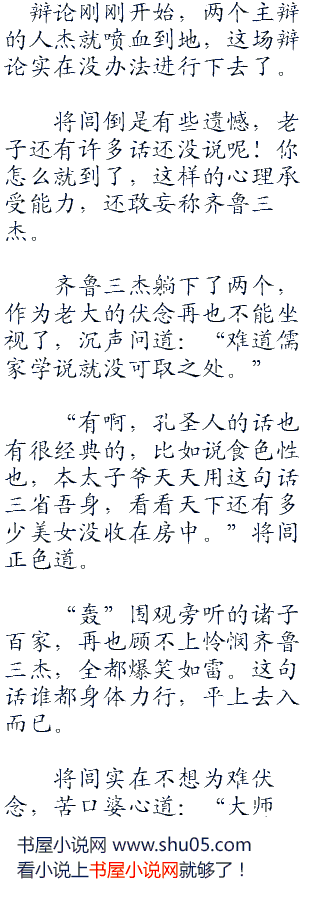 辩论刚刚开始，两个主辩
的人杰就喷血到地，这场辩
论实在没办法进行下去了。
将闾倒是有些遗憾，老
子还有许多话还没说呢！你
怎么就到了，这样的心理承
受能力，还敢妄称齐鲁三
杰。
齐鲁三杰躺下了两个，
作为老大的伏念再也不能坐
视了，沉声问道：“难道儒
家学说就没可取之处。”
“有啊，孔圣人的话也
有很经典的，比如说食色性
也，本太子爷天天用这句话
三省吾身，看看天下还有多
少美女没收在房中。”将闾
正色道。
“轰”围观旁听的诸子
百家，再也顾不上怜悯齐鲁
三杰，全都爆笑如雷。这句
话谁都身体力行，平上去入
而已。
将闾实在不想为难伏
念，苦口婆心道：“大师
书屋小说网 www.shu05.com
看小说上书屋小说网就够了！